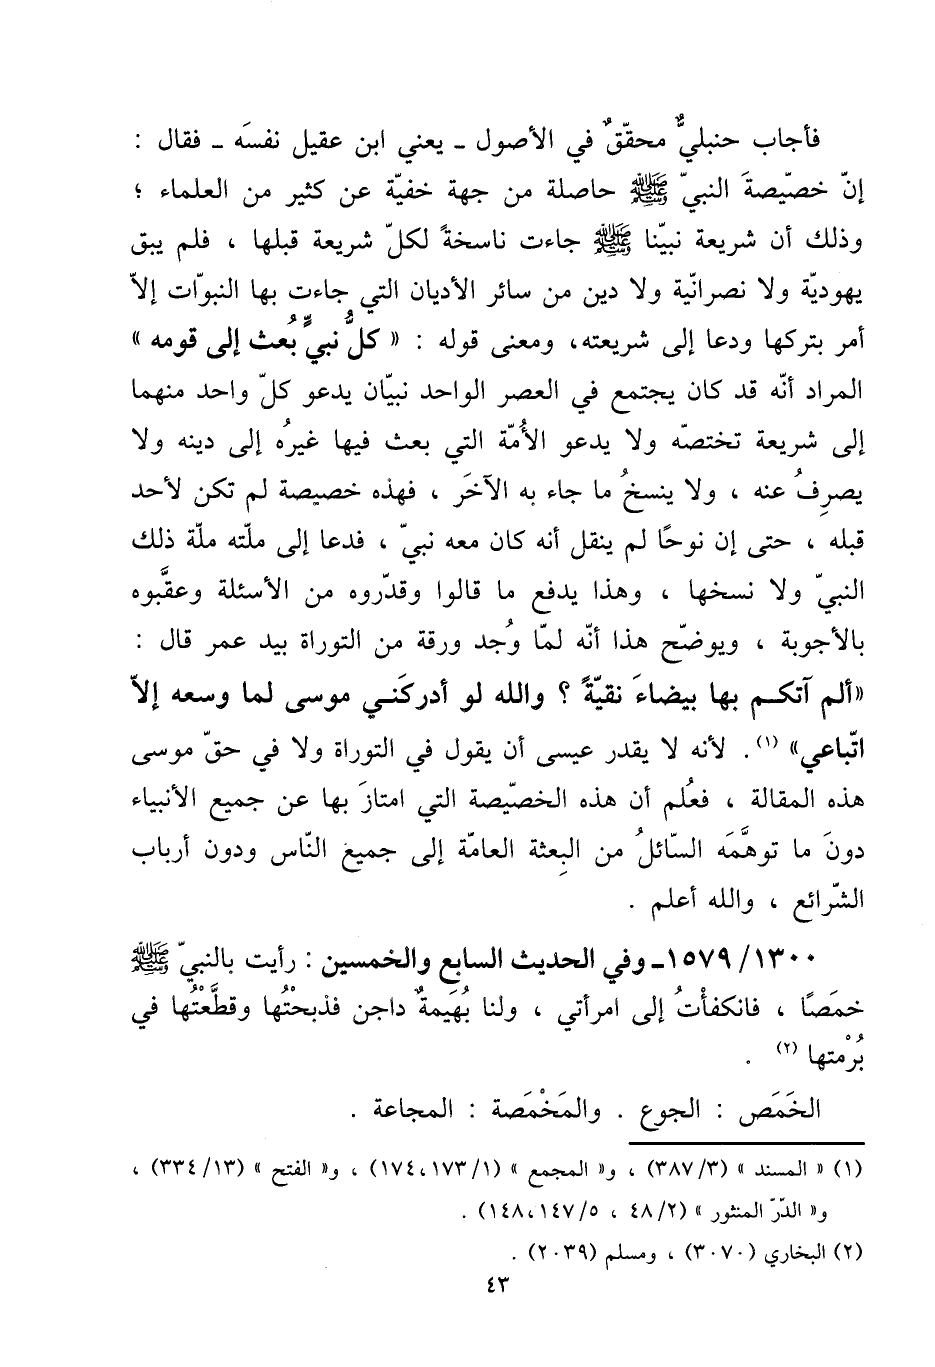 فأجاب حنبليٌّ محقّقٌ في الأصول ـ يعني ابن عقيل نفسَه ـ فقال :
إنّ خصّيصةَ النبيّ ﷺ حاصلة من جهة خفيّة عن كثير من العلماء ؛
وذلك أن شريعة نبيّنا ﷺ جاءت ناسخةً لكلّ شريعة قبلها ، فلم يبق
يهوديّة ولا نصرانّية ولا دين من سائر الأديان التي جاءت بها النبوّات إلاّ
أمر بتركها ودعا إلى شريعته، ومعنى قوله : « كلُّ نبيٍّ بُعث إلى قومه »
المراد أنّه قد كان يجتمع في العصر الواحد نبيّان يدعو كلّ واحد منهما
إلى شريعة تختصّه ولا يدعو الأُمّة التي بعث فيها غيرُه إلى دينه ولا
يصرِفُ عنه ، ولا ينسخُ ما جاء به الآخَر ، فهذه خصيصة لم تكن لأحد
قبله ، حتى إن نوحًا لم ينقل أنه كان معه نبيّ ، فدعا إلى ملّته ملّة ذلك
النبيّ ولا نسخها ، وهذا يدفع ما قالوا وقدّروه من الأسئلة وعقَّبوه
بالأجوبة ، ويوضّح هذا أنّه لمّا وُجد ورقة من التوراة بيد عمر قال :
«ألم آتكم بها بيضاءَ نقيّةً ؟ والله لو أدركَني موسى لما وسعه إلاّ
اتّباعي» (١) . لأنه لا يقدر عيسى أن يقول في التوراة ولا في حقّ موسى
هذه المقالة ، فعُلم أن هذه الخصّيصة التي امتازَ بها عن جميع الأنبياء
دونَ ما توهَّمَه السّائلُ من البِعثة العامّة إلى جميع النّاس ودون أرباب
الشّرائع ، والله أعلم .
١٥٧٩/١٣٠٠ـ وفي الحديث السابع والخمسين : رأيت بالنبيّ ﷺ
خمَصًا ، فانكفأْتُ إلى امرأتي ، ولنا بُهَيمةٌ داجن فذبحْتُها وقطَّعْتُها في
بُرْمتها (٢) .
الخَمَص : الجوع . والمَخْمَصة : المجاعة .
(١) « المسند » (٣٨٧/٣) ، و« المجمع » (١٧٤،١٧٣/١) ، و« الفتح » (٣٣٤/١٣) ،
و« الدّرّ المنثور » (٤٨/٢ ، ١٤٨،١٤٧/٥) .
(٢) البخاري (٣٠٧٠) ، ومسلم (٢٠٣٩) .
٤٣